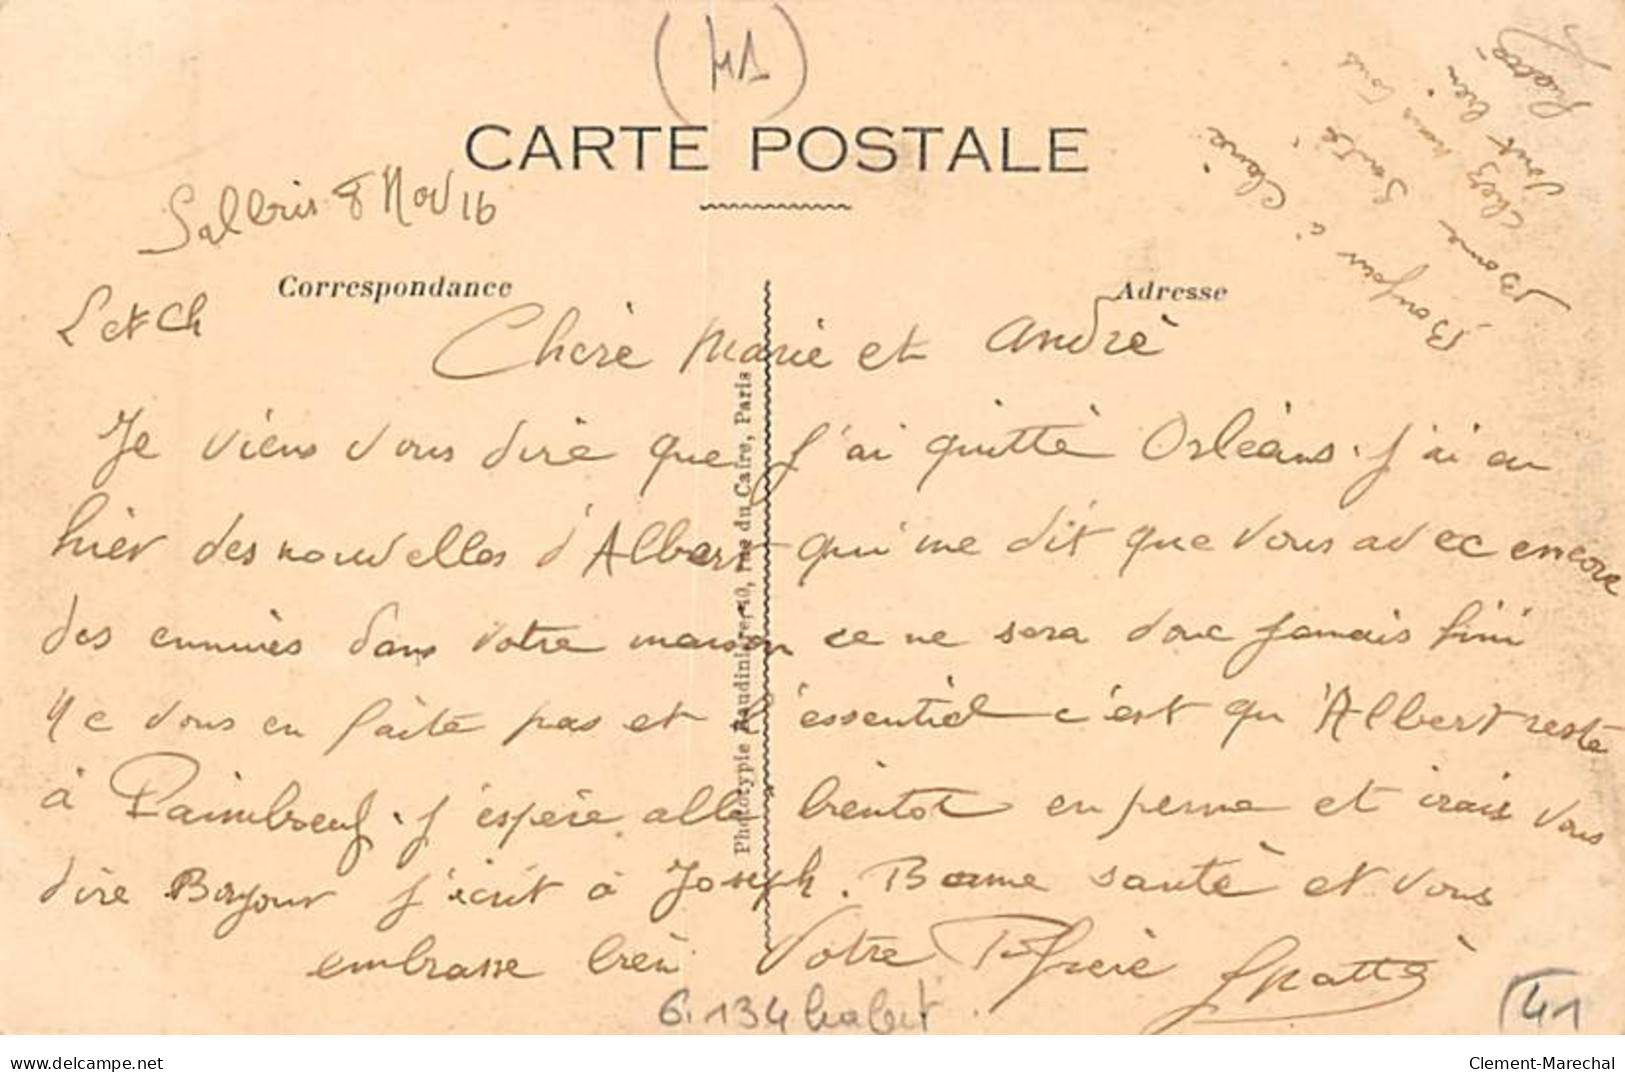 (41)
CARTE POSTALE
Salbris 8 Nov 16
Correspondance
Adresse
L et Ch
Chère Marie et André
Je viens vous dire que j'ai quitté Orléans. j'ai eu
hier des nouvelles d'Albert qui me dit que vous avec encore
des ennuies dans votre maison ce ne sera donc jamais fini
Ne vous en faite pas et l'essentiel c'est qu'Albert reste
à Paimboeuf. j'espère aller bientot en perme et irais vous
dire Bonjour j'écrit à Joseph. Bonne santé et vous
embrasse bien Votre P. frère
Bonjour à Claire
Bonne Santé
chez nous tous
sont bien
Phototypie Baudinière, 40, rue du Caire, Paris
6.134 habit.
41
www.delcampe.net
Clement-Marechal